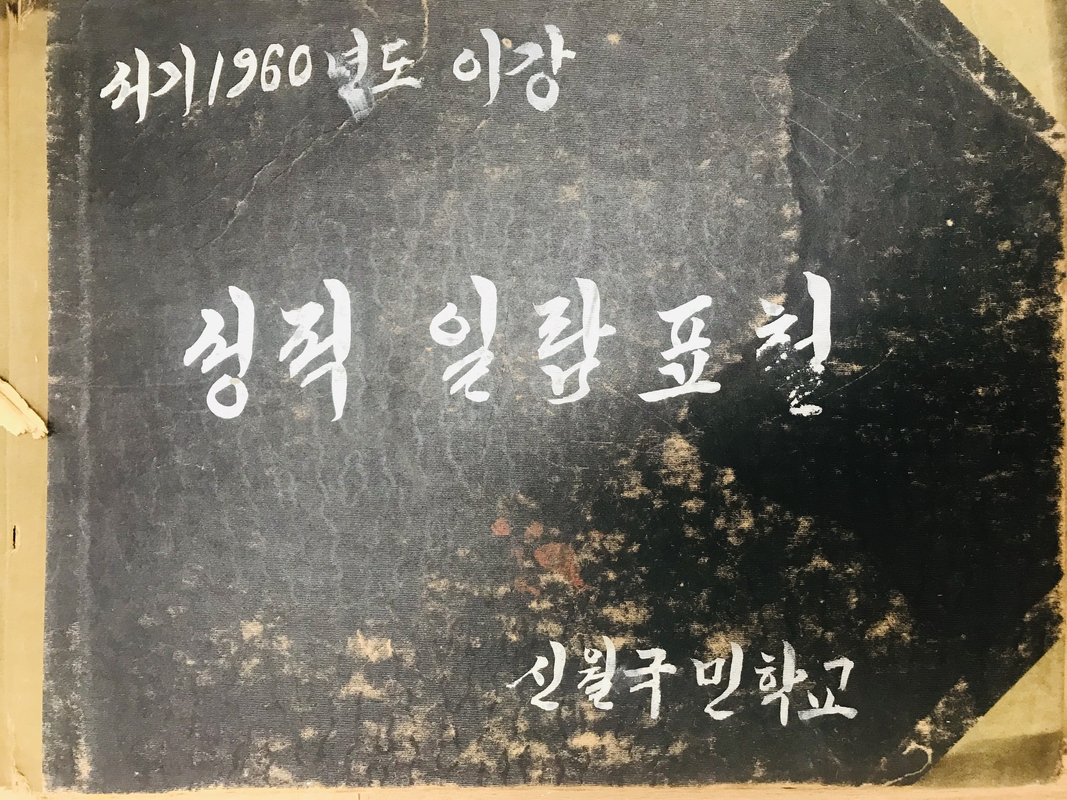 서기 1960년도 이강
성적 일람표철
신월국민학교